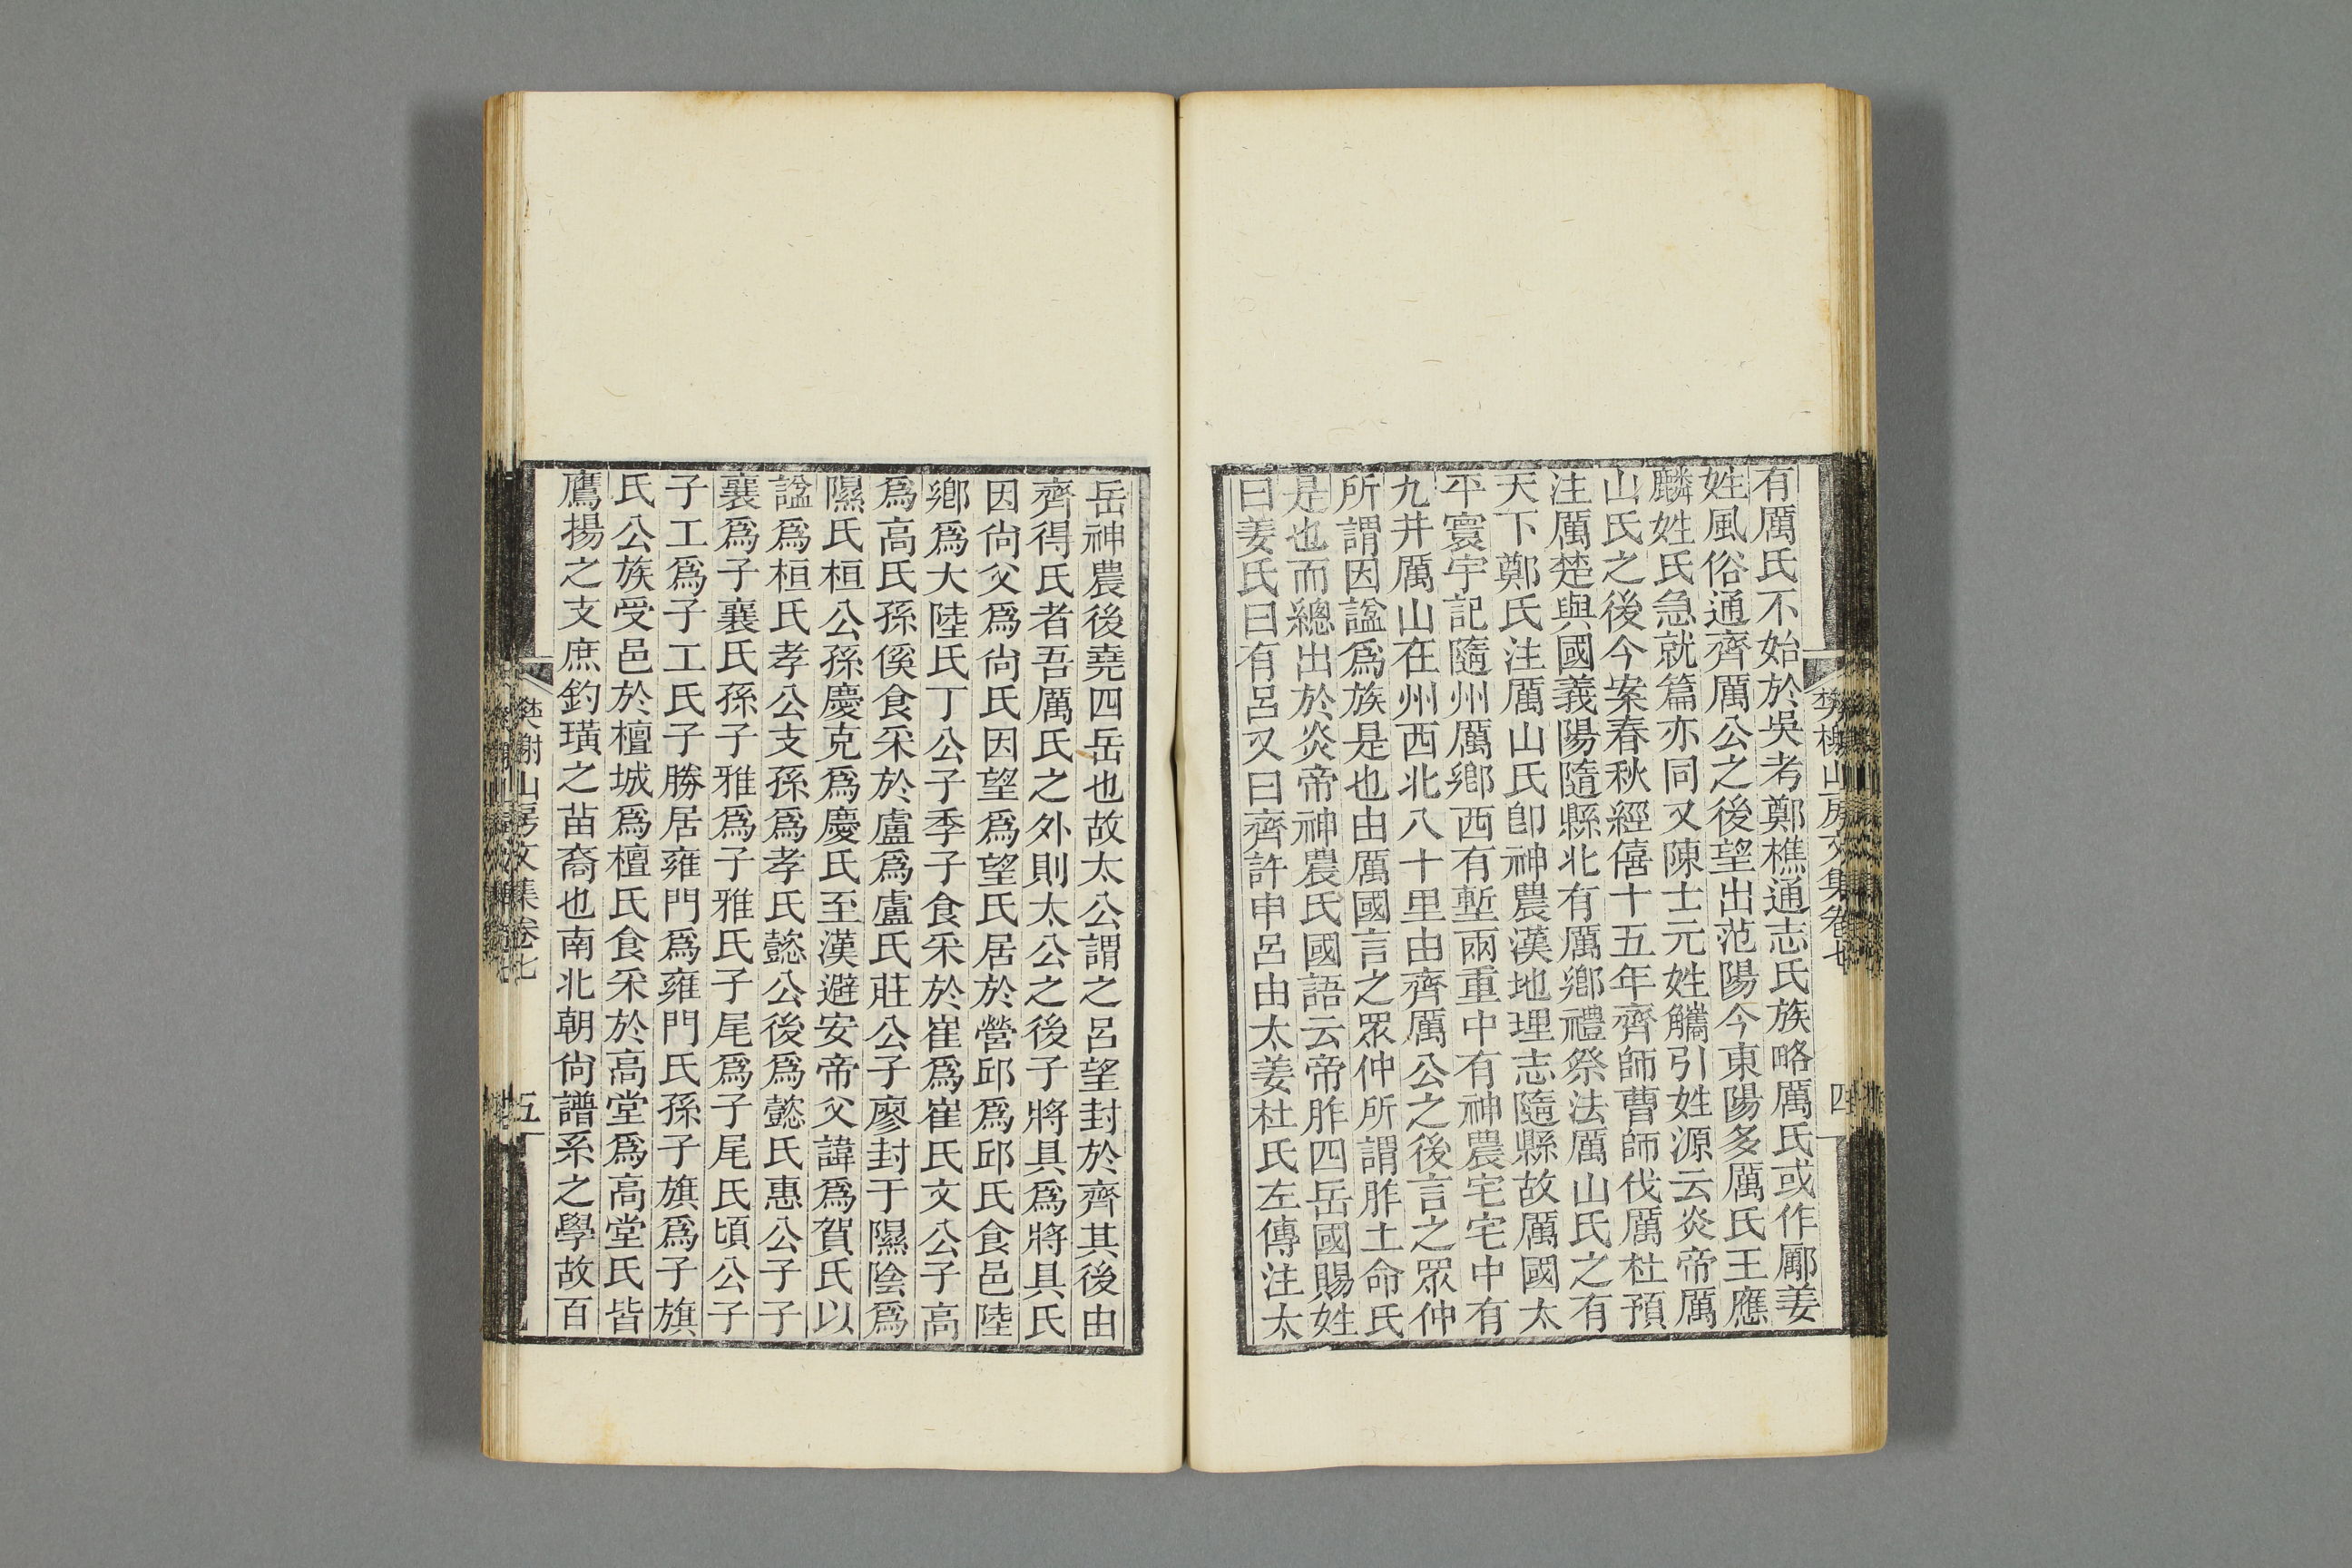 有厲氏不始於吳考鄭樵通志氏族略厲氏或作郿姜
姓風俗通齊厲公之後望出范陽今東陽多厲氏王應
麟姓氏急就篇亦同又陳士元姓觿引姓源云炎帝厲
山氏之後今案春秋經僖十五年齊師曹師伐厲杜預
注厲楚與國義陽隨縣北有厲鄉禮祭法厲山氏之有
天下鄭氏注厲山氏卽神農漢地理志隨縣故厲國太
平寰宇記隨州厲鄉西有塹兩重中有神農宅宅中有
九井厲山在州西北八十里由齊厲公之後言之眾仲
所謂因諡爲族是也由厲國言之眾仲所謂胙土命氏
是也而總出於炎帝神農氏國語云帝胙四岳國賜姓
曰姜氏曰有呂又曰齊許申呂由太姜杜氏左傳注太
樊榭山房文集卷七
四
岳神農後堯四岳也故太公謂之呂望封於齊其後由
齊得氏者吾厲氏之外則太公之後子將具爲將具氏
因尙父爲尙氏因望爲望氏居於營邱爲邱氏食邑陸
鄉爲大陸氏丁公子季子食采於崔爲崔氏文公子高
爲高氏孫傒食采於盧爲盧氏莊公子廖封于隰陰爲
隰氏桓公孫慶克爲慶氏至漢避安帝父諱爲賀氏以
諡爲桓氏孝公支孫爲孝氏懿公後爲懿氏惠公子子
襄爲子襄氏孫子雅爲子雅氏子尾爲子尾氏頃公子
子工爲子工氏子勝居雍門爲雍門氏孫子旗爲子旗
氏公族受邑於檀城爲檀氏食采於高堂爲高堂氏皆
鷹揚之支庶釣璜之苗裔也南北朝尙譜系之學故百
樊榭山房文集卷七
五